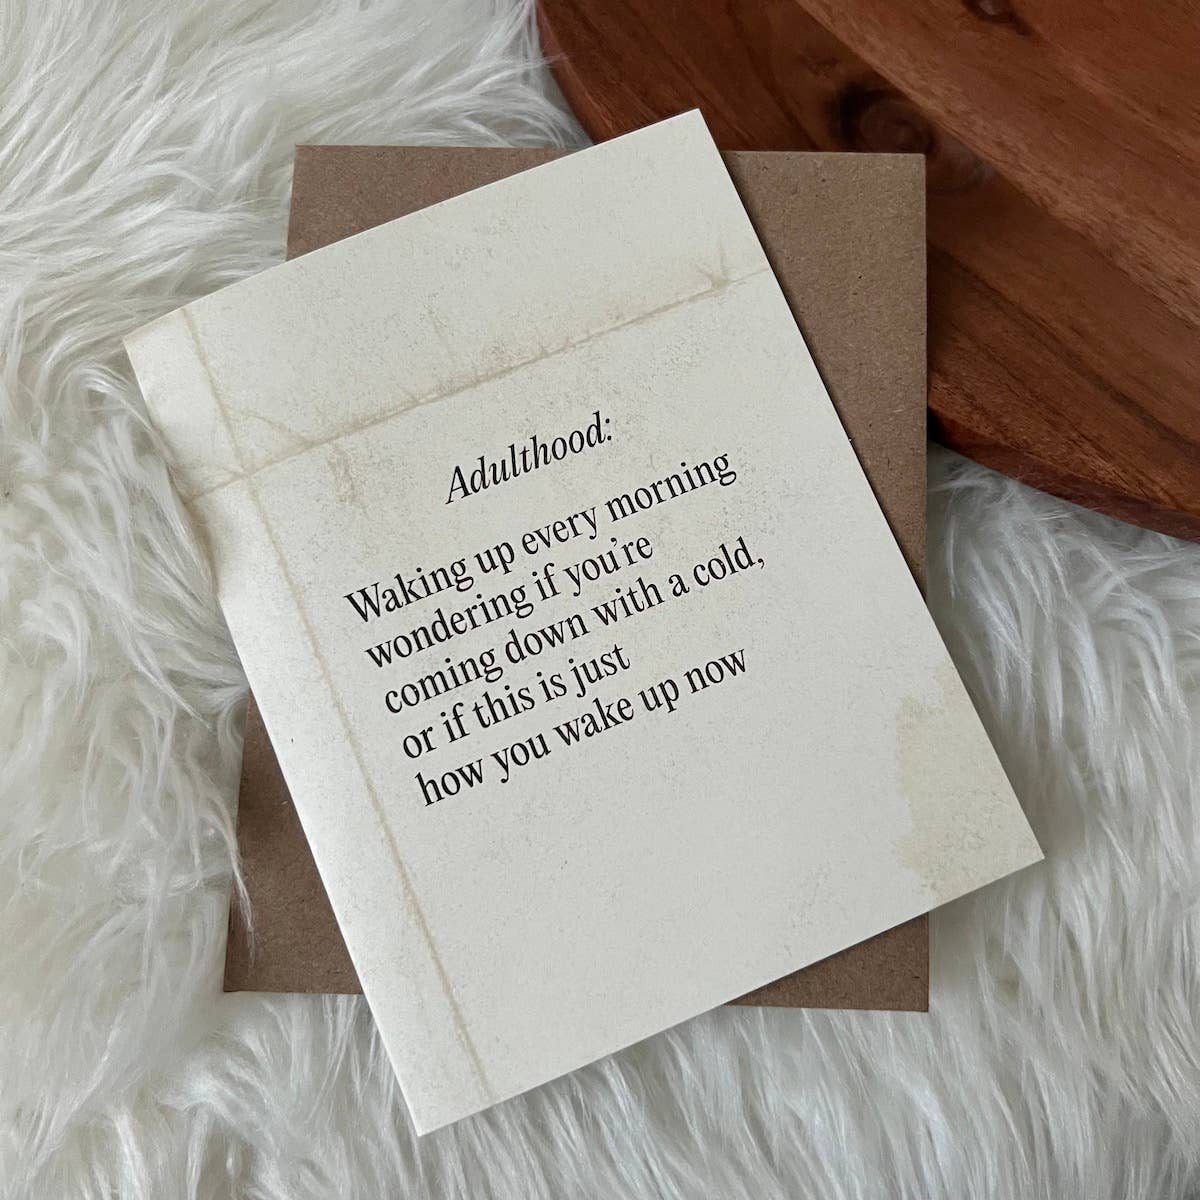 Adulthood:
Waking up every morning
wondering if you're
coming down with a cold,
or if this is just
how you wake up now